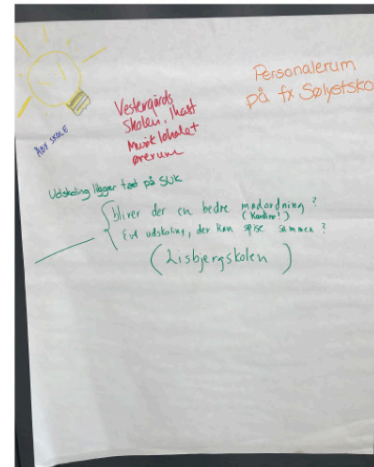 Personalerum
på fx Sølystsko
Vestergårds
Skolen, 
Musik lokalet
ørerum
Udskoling ligger tæt på SUK
bliver der en bedre madordning?
(Kantine!)
Evt udskoling, der kan spise sammen?
(Lisbjergskolen)